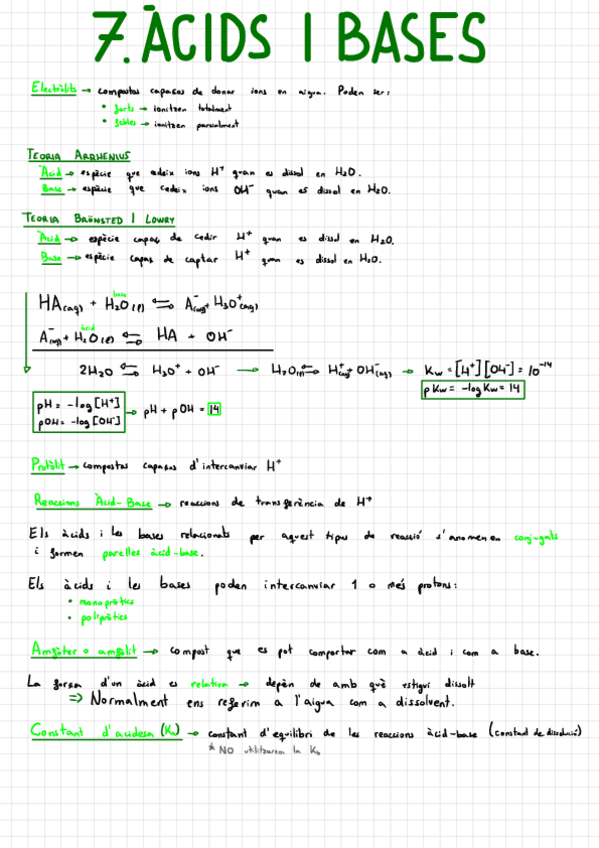 7. ÀCIDS I BASES
Electròlits → compostos capaços de donar ions en aigua. Poden ser:
• forts → ionitzen totalment
• febles → ionitzen parcialment
TEORIA ARRHENIUS
Àcid → espècie que cedeix ions H⁺ quan es dissol en H₂O.
Base → espècie que cedeix ions OH⁻ quan es dissol en H₂O.
TEORIA BRÖNSTED I LOWRY
Àcid → espècie capaç de cedir H⁺ quan es dissol en H₂O.
Base → espècie capaç de captar H⁺ quan es dissol en H₂O.
base
HA(aq) + H₂O(l) ⇌ A⁻(aq) + H₃O⁺(aq)
àcid
A⁻(aq) + H₂O(l) ⇌ HA + OH⁻
2H₂O ⇌ H₃O⁺ + OH⁻ → H₂O(l) ⇌ H⁺(aq) + OH⁻(aq) → Kw = [H⁺][OH⁻] = 10⁻¹⁴
pKw = -logKw = 14
pH = -log[H⁺]
pOH = -log[OH⁻] → pH + pOH = 14
Protòlit → compostos capaços d'intercanviar H⁺
Reaccions Àcid-Base → reaccions de transferència de H⁺
Els àcids i les bases relacionats per aquest tipus de reacció s'anomenen conjugats
i formen parelles àcid-base.
Els àcids i les bases poden intercanviar 1 o més protons:
• monopròtics
• polipròtics
Amfòter o amfòlit → compost que es pot comportar com a àcid i com a base.
La força d'un àcid es relativa → depèn de amb què estigui dissolt
⇒ Normalment ens referim a l'aigua com a dissolvent.
Constant d'acidesa (Ka) → constant d'equilibri de les reaccions àcid-base (constant de dissolució)
* NO utilitzarem la Kb